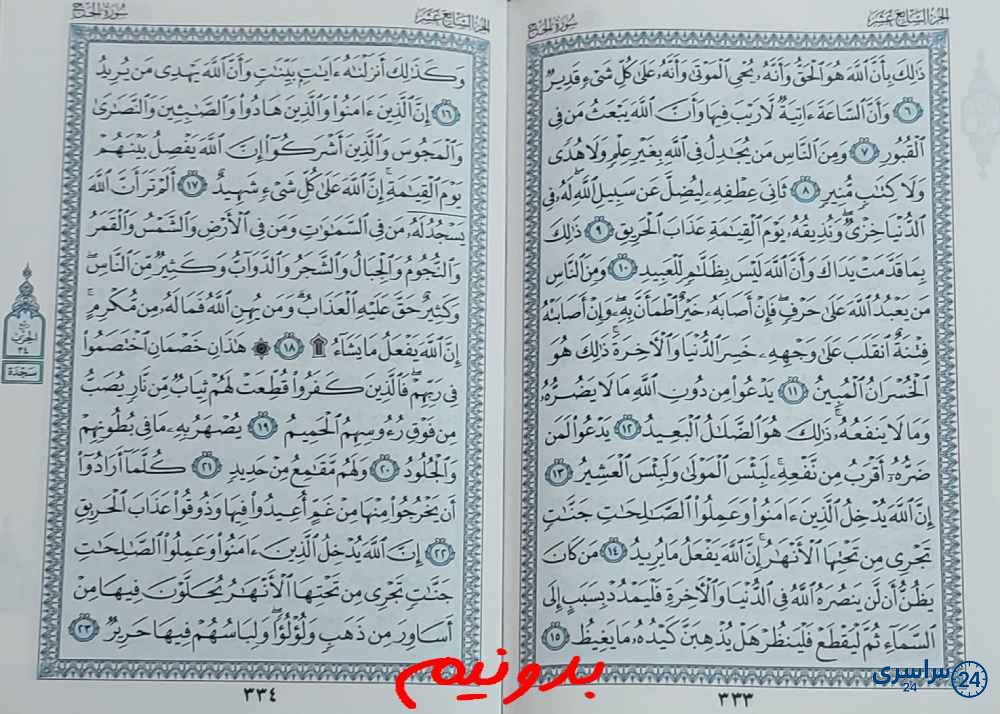 الجزء السابع عشر
سورة الحج
ذَٰلِكَ بِأَنَّ ٱللَّهَ هُوَ ٱلْحَقُّ وَأَنَّهُۥ يُحْىِ ٱلْمَوْتَىٰ وَأَنَّهُۥ عَلَىٰ كُلِّ شَىْءٍ قَدِيرٌ
٦ وَأَنَّ ٱلسَّاعَةَ ءَاتِيَةٌ لَّا رَيْبَ فِيهَا وَأَنَّ ٱللَّهَ يَبْعَثُ مَن فِى
ٱلْقُبُورِ ٧ وَمِنَ ٱلنَّاسِ مَن يُجَٰدِلُ فِى ٱللَّهِ بِغَيْرِ عِلْمٍ وَلَا هُدًى
وَلَا كِتَٰبٍ مُّنِيرٍ ٨ ثَانِىَ عِطْفِهِۦ لِيُضِلَّ عَن سَبِيلِ ٱللَّهِ لَهُۥ فِى
ٱلدُّنْيَا خِزْىٌ وَنُذِيقُهُۥ يَوْمَ ٱلْقِيَٰمَةِ عَذَابَ ٱلْحَرِيقِ ٩ ذَٰلِكَ
بِمَا قَدَّمَتْ يَدَاكَ وَأَنَّ ٱللَّهَ لَيْسَ بِظَلَّٰمٍ لِّلْعَبِيدِ ١٠ وَمِنَ ٱلنَّاسِ
مَن يَعْبُدُ ٱللَّهَ عَلَىٰ حَرْفٍ فَإِنْ أَصَابَهُۥ خَيْرٌ ٱطْمَأَنَّ بِهِۦ وَإِنْ أَصَابَتْهُ
فِتْنَةٌ ٱنقَلَبَ عَلَىٰ وَجْهِهِۦ خَسِرَ ٱلدُّنْيَا وَٱلْأَخِرَةَ ذَٰلِكَ هُوَ
ٱلْخُسْرَانُ ٱلْمُبِينُ ١١ يَدْعُواْ مِن دُونِ ٱللَّهِ مَا لَا يَضُرُّهُۥ
وَمَا لَا يَنفَعُهُۥ ذَٰلِكَ هُوَ ٱلضَّلَٰلُ ٱلْبَعِيدُ ١٢ يَدْعُواْ لَمَن
ضَرُّهُۥٓ أَقْرَبُ مِن نَّفْعِهِۦ لَبِئْسَ ٱلْمَوْلَىٰ وَلَبِئْسَ ٱلْعَشِيرُ ١٣
إِنَّ ٱللَّهَ يُدْخِلُ ٱلَّذِينَ ءَامَنُواْ وَعَمِلُواْ ٱلصَّٰلِحَٰتِ جَنَّٰتٍ
تَجْرِى مِن تَحْتِهَا ٱلْأَنْهَٰرُ إِنَّ ٱللَّهَ يَفْعَلُ مَا يُرِيدُ ١٤ مَن كَانَ
يَظُنُّ أَن لَّن يَنصُرَهُ ٱللَّهُ فِى ٱلدُّنْيَا وَٱلْأَخِرَةِ فَلْيَمْدُدْ بِسَبَبٍ إِلَى
ٱلسَّمَآءِ ثُمَّ لْيَقْطَعْ فَلْيَنظُرْ هَلْ يُذْهِبَنَّ كَيْدُهُۥ مَا يَغِيظُ ١٥
٣٣٣
الجزء السابع عشر
سورة الحج
وَكَذَٰلِكَ أَنزَلْنَٰهُ ءَايَٰتٍ بَيِّنَٰتٍ وَأَنَّ ٱللَّهَ يَهْدِى مَن يُرِيدُ
١٦ إِنَّ ٱلَّذِينَ ءَامَنُواْ وَٱلَّذِينَ هَادُواْ وَٱلصَّٰبِـِٔينَ وَٱلنَّصَٰرَىٰ
وَٱلْمَجُوسَ وَٱلَّذِينَ أَشْرَكُوٓاْ إِنَّ ٱللَّهَ يَفْصِلُ بَيْنَهُمْ
يَوْمَ ٱلْقِيَٰمَةِ إِنَّ ٱللَّهَ عَلَىٰ كُلِّ شَىْءٍ شَهِيدٌ ١٧ أَلَمْ تَرَ أَنَّ ٱللَّهَ
يَسْجُدُ لَهُۥ مَن فِى ٱلسَّمَٰوَٰتِ وَمَن فِى ٱلْأَرْضِ وَٱلشَّمْسُ وَٱلْقَمَرُ
وَٱلنُّجُومُ وَٱلْجِبَالُ وَٱلشَّجَرُ وَٱلدَّوَآبُّ وَكَثِيرٌ مِّنَ ٱلنَّاسِ
وَكَثِيرٌ حَقَّ عَلَيْهِ ٱلْعَذَابُ وَمَن يُهِنِ ٱللَّهُ فَمَا لَهُۥ مِن مُّكْرِمٍ
إِنَّ ٱللَّهَ يَفْعَلُ مَا يَشَآءُ ۩ ١٨ ۞ هَٰذَانِ خَصْمَانِ ٱخْتَصَمُواْ
فِى رَبِّهِمْ فَٱلَّذِينَ كَفَرُواْ قُطِّعَتْ لَهُمْ ثِيَابٌ مِّن نَّارٍ يُصَبُّ
مِن فَوْقِ رُءُوسِهِمُ ٱلْحَمِيمُ ١٩ يُصْهَرُ بِهِۦ مَا فِى بُطُونِهِمْ
وَٱلْجُلُودُ ٢٠ وَلَهُم مَّقَٰمِعُ مِنْ حَدِيدٍ ٢١ كُلَّمَآ أَرَادُوٓاْ
أَن يَخْرُجُواْ مِنْهَا مِنْ غَمٍّ أُعِيدُواْ فِيهَا وَذُوقُواْ عَذَابَ ٱلْحَرِيقِ
٢٢ إِنَّ ٱللَّهَ يُدْخِلُ ٱلَّذِينَ ءَامَنُواْ وَعَمِلُواْ ٱلصَّٰلِحَٰتِ
جَنَّٰتٍ تَجْرِى مِن تَحْتِهَا ٱلْأَنْهَٰرُ يُحَلَّوْنَ فِيهَا مِنْ
أَسَاوِرَ مِن ذَهَبٍ وَلُؤْلُؤًا وَلِبَاسُهُمْ فِيهَا حَرِيرٌ ٢٣
٣٣٤
ربع
الحزب
٣٤
سجدة
بدونیم
سراسری
24
24